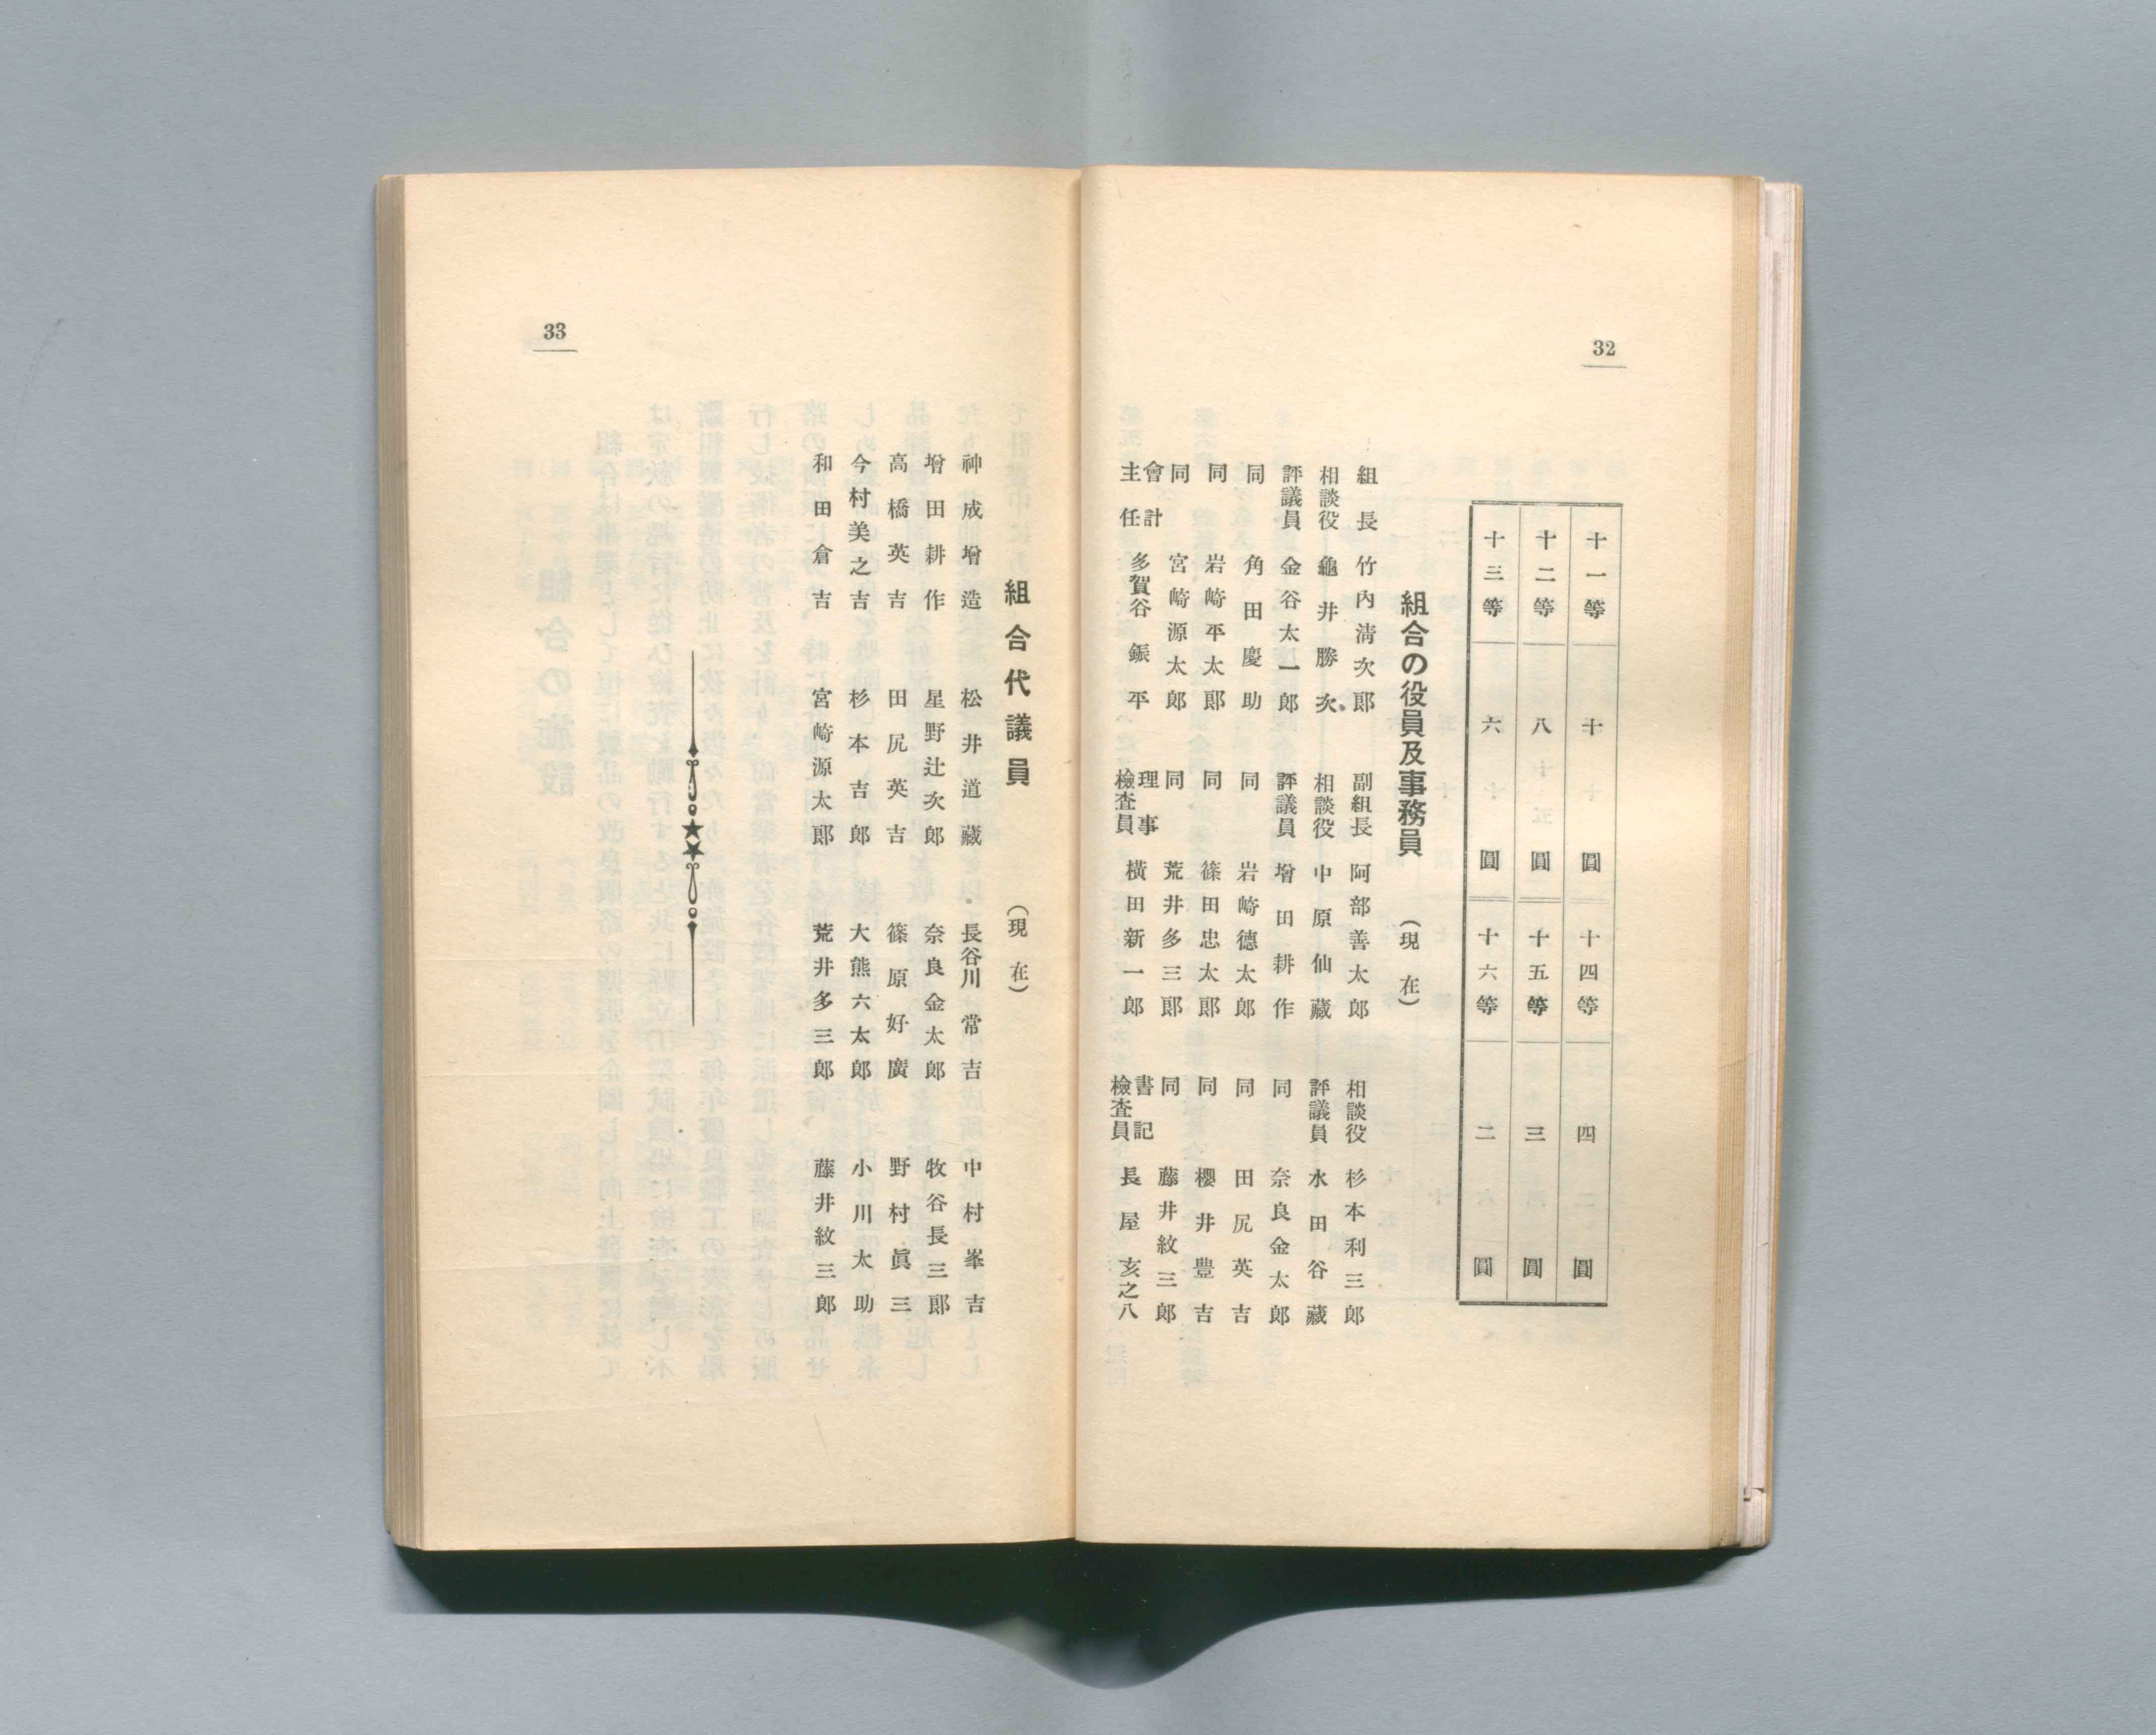 32
十一等 十圓 十四等 四圓
十二等 八圓 十五等 三圓
十三等 六圓 十六等 二圓
組合の役員及事務員 (現在)
組長 竹內淸次郎 副組長 阿部善太郎 相談役 杉本利三郎
相談役 龜井勝次 相談役 中原仙藏 評議員 水田谷藏
評議員 金谷太一郎 評議員 增田耕作 同 奈良金太郎
同 角田慶助 同 岩崎德太郎 同 田尻英吉
同 岩崎平太郎 同 篠田忠太郎 同 櫻井豊吉
同 宮崎源太郎 同 荒井多三郎 同 藤井紋三郎
會計主任 多賀谷鋠平 理事檢査員 橫田新一郎 書記檢査員 長屋亥之八
33
組合代議員 (現在)
神成增造 松井道藏 長谷川常吉 中村峯吉
增田耕作 星野辻次郎 奈良金太郎 牧谷長三郎
高橋英吉 田尻英吉 篠原好廣 野村眞三
今村美之吉 杉本吉郎 大熊六太郎 小川太助
和田倉吉 宮崎源太郎 荒井多三郎 藤井紋三郎